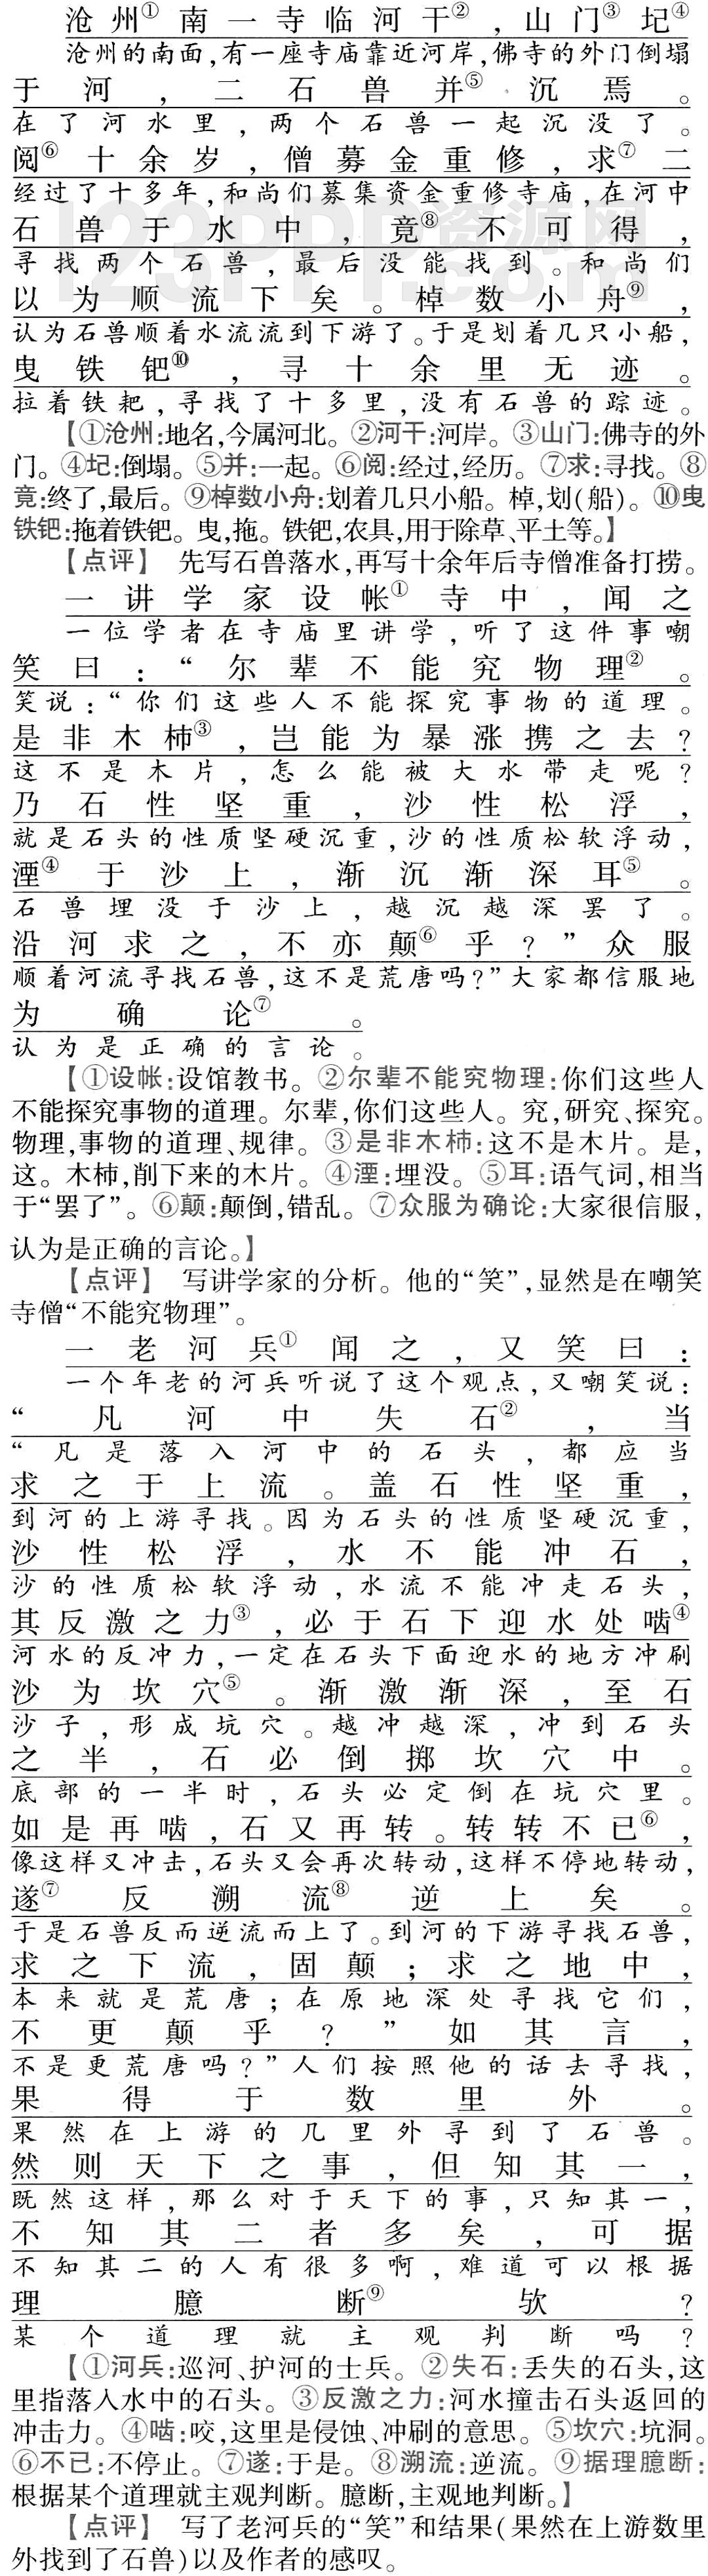 沧州①南一寺临河干②，山门③圮④
沧州的南面，有一座寺庙靠近河岸，佛寺的外门倒塌
于河，二石兽并⑤沉焉。
在了河水里，两个石兽一起沉没了。
阅⑥十余岁，僧募金重修，求⑦二
经过了十多年，和尚们募集资金重修寺庙，在河中
石兽于水中，竟⑧不可得，
寻找两个石兽，最后没能找到。和尚们
以为顺流下矣。棹数小舟⑨，
认为石兽顺着水流流到下游了。于是划着几只小船，
曳铁钯⑩，寻十余里无迹。
拉着铁耙，寻找了十多里，没有石兽的踪迹。
【①沧州：地名，今属河北。②河干：河岸。③山门：佛寺的外
门。④圮：倒塌。⑤并：一起。⑥阅：经过，经历。⑦求：寻找。⑧
竟：终了，最后。⑨棹数小舟：划着几只小船。棹，划（船）。⑩曳
铁钯：拖着铁钯。曳，拖。铁钯，农具，用于除草、平土等。】
【点评】 先写石兽落水，再写十余年后寺僧准备打捞。
一讲学家设帐①寺中，闻之
一位学者在寺庙里讲学，听了这件事嘲
笑曰：“尔辈不能究物理②。
笑说：“你们这些人不能探究事物的道理。
是非木杮③，岂能为暴涨携之去？
这不是木片，怎么能被大水带走呢？
乃石性坚重，沙性松浮，
就是石头的性质坚硬沉重，沙的性质松软浮动，
湮④于沙上，渐沉渐深耳⑤。
石兽埋没于沙上，越沉越深罢了。
沿河求之，不亦颠⑥乎？”众服
顺着河流寻找石兽，这不是荒唐吗？”大家都信服地
为确论⑦。
认为是正确的言论。
【①设帐：设馆教书。②尔辈不能究物理：你们这些人
不能探究事物的道理。尔辈，你们这些人。究，研究、探究。
物理，事物的道理、规律。③是非木杮：这不是木片。是，
这。木杮，削下来的木片。④湮：埋没。⑤耳：语气词，相当
于“罢了”。⑥颠：颠倒，错乱。⑦众服为确论：大家很信服，
认为是正确的言论。】
【点评】 写讲学家的分析。他的“笑”，显然是在嘲笑
寺僧“不能究物理”。
一老河兵①闻之，又笑曰：
一个年老的河兵听说了这个观点，又嘲笑说：
“凡河中失石②，当
“凡是落入河中的石头，都应当
求之于上流。盖石性坚重，
到河的上游寻找。因为石头的性质坚硬沉重，
沙性松浮，水不能冲石，
沙的性质松软浮动，水流不能冲走石头，
其反激之力③，必于石下迎水处啮④
河水的反冲力，一定在石头下面迎水的地方冲刷
沙为坎穴⑤。渐激渐深，至石
沙子，形成坑穴。越冲越深，冲到石头
之半，石必倒掷坎穴中。
底部的一半时，石头必定倒在坑穴里。
如是再啮，石又再转。转转不已⑥，
像这样又冲击，石头又会再次转动，这样不停地转动，
遂⑦反溯流⑧逆上矣。
于是石兽反而逆流而上了。到河的下游寻找石兽，
求之下流，固颠；求之地中，
本来就是荒唐；在原地深处寻找它们，
不更颠乎？”如其言，
不是更荒唐吗？”人们按照他的话去寻找，
果得于数里外。
果然在上游的几里外寻到了石兽。
然则天下之事，但知其一，
既然这样，那么对于天下的事，只知其一，
不知其二者多矣，可据
不知其二的人有很多啊，难道可以根据
理臆断⑨欤？
某个道理就主观判断吗？
【①河兵：巡河、护河的士兵。②失石：丢失的石头，这
里指落入水中的石头。③反激之力：河水撞击石头返回的
冲击力。④啮：咬，这里是侵蚀、冲刷的意思。⑤坎穴：坑洞。
⑥不已：不停止。⑦遂：于是。⑧溯流：逆流。⑨据理臆断：
根据某个道理就主观判断。臆断，主观地判断。】
【点评】 写了老河兵的“笑”和结果（果然在上游数里
外找到了石兽）以及作者的感叹。